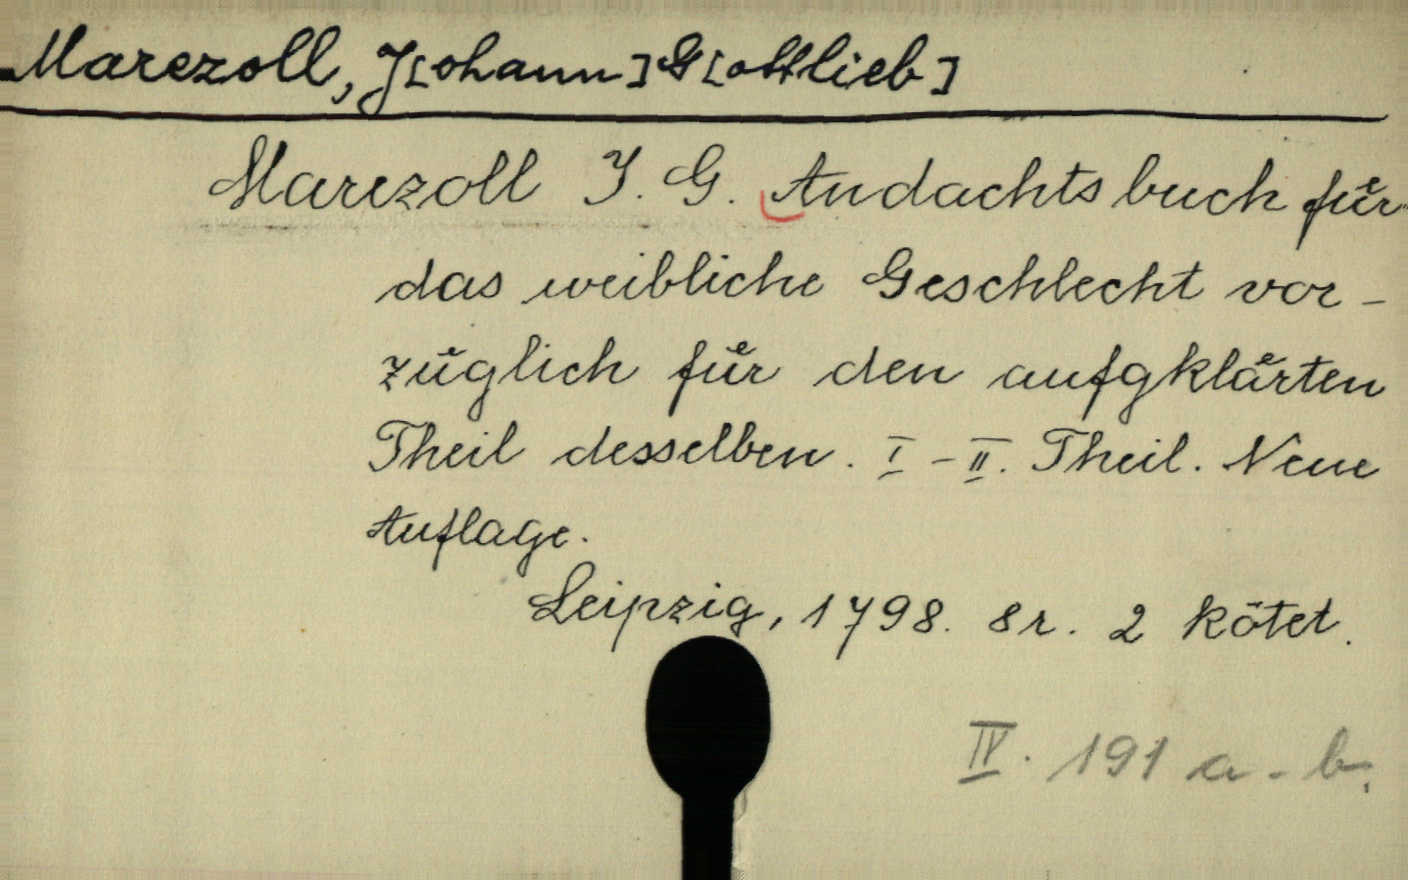 Marezoll, J[ohann] G[ottlieb]
Marezoll J. G. Andachtsbuch fuͤr
das weibliche Geschlecht vor-
zuͤglich fuͤr den aufgklaͤrten
Theil desselben. I-II. Theil. Neue
Auflage.
Leipzig, 1798. 8r. 2 kötet.
IV. 191 a-b.